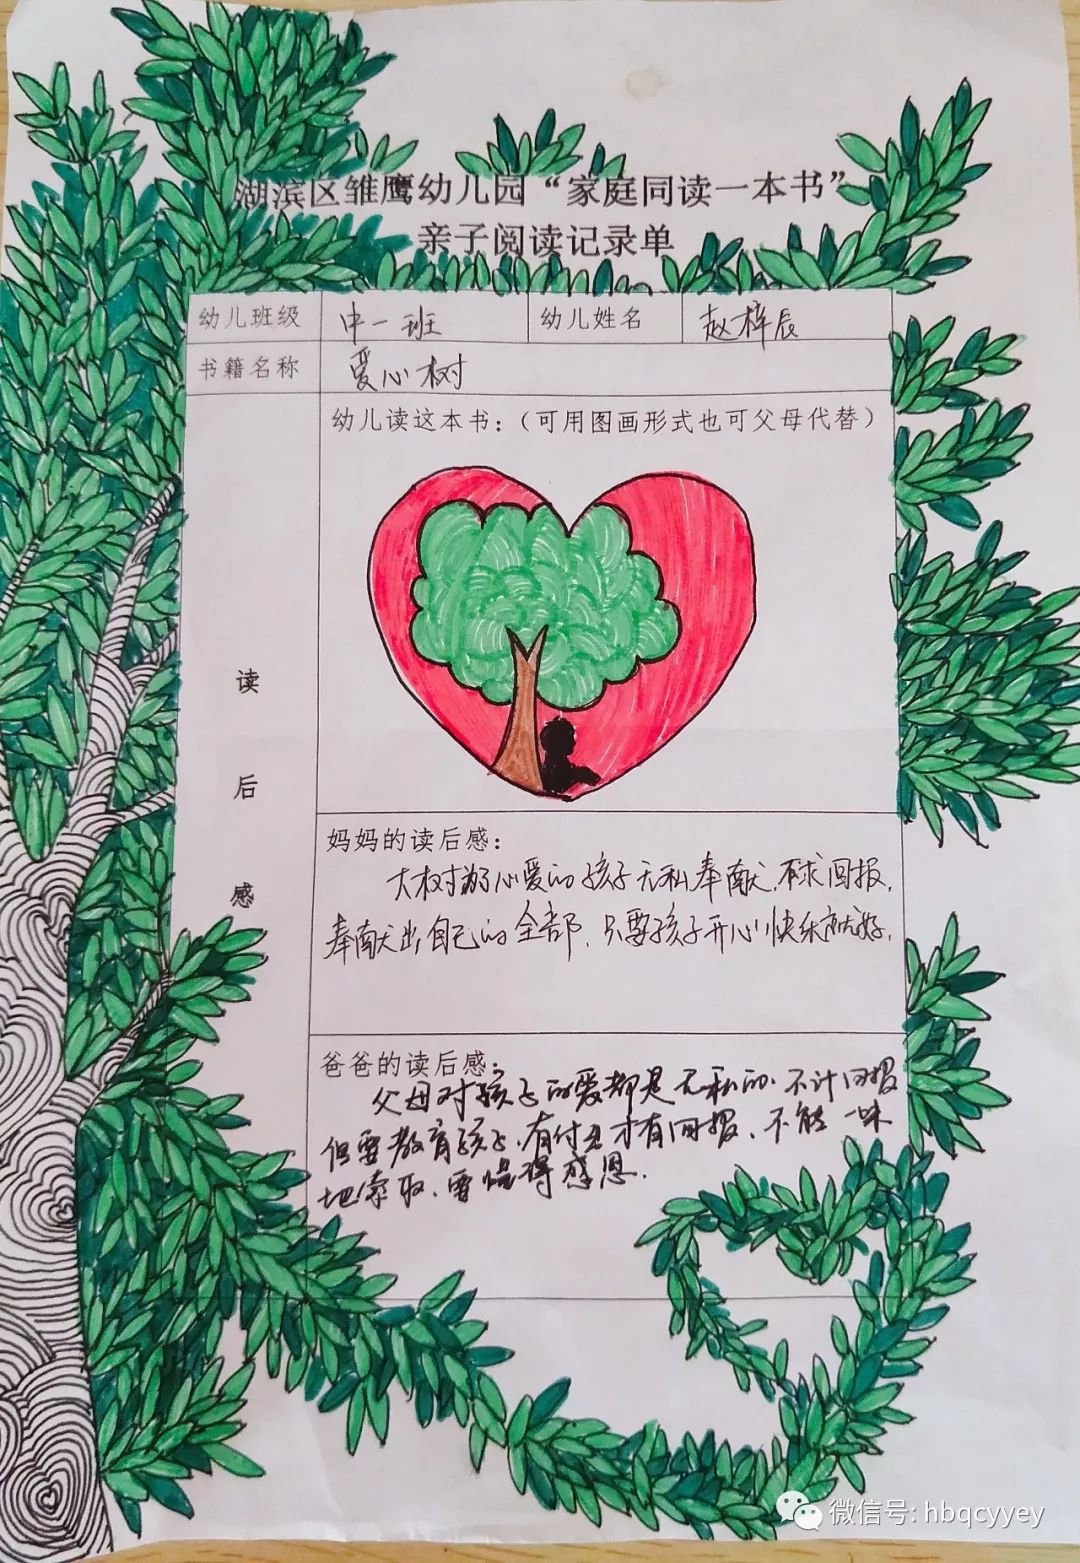 湖滨区雏鹰幼儿园“家庭同读一本书”
亲子阅读记录单
幼儿班级 中一班 幼儿姓名 赵梓辰
书籍名称 爱心树
幼儿读这本书：（可用图画形式也可父母代替）
读后感
妈妈的读后感：
大树为了心爱的孩子无私奉献，不求回报，
奉献出自己的全部，只要孩子开心快乐就好，
爸爸的读后感：
父母对孩子的爱都是无私的，不计回报
但要教育孩子，有付出才有回报，不能一味
地索取，要懂得感恩．
微信号: hbqcyyey